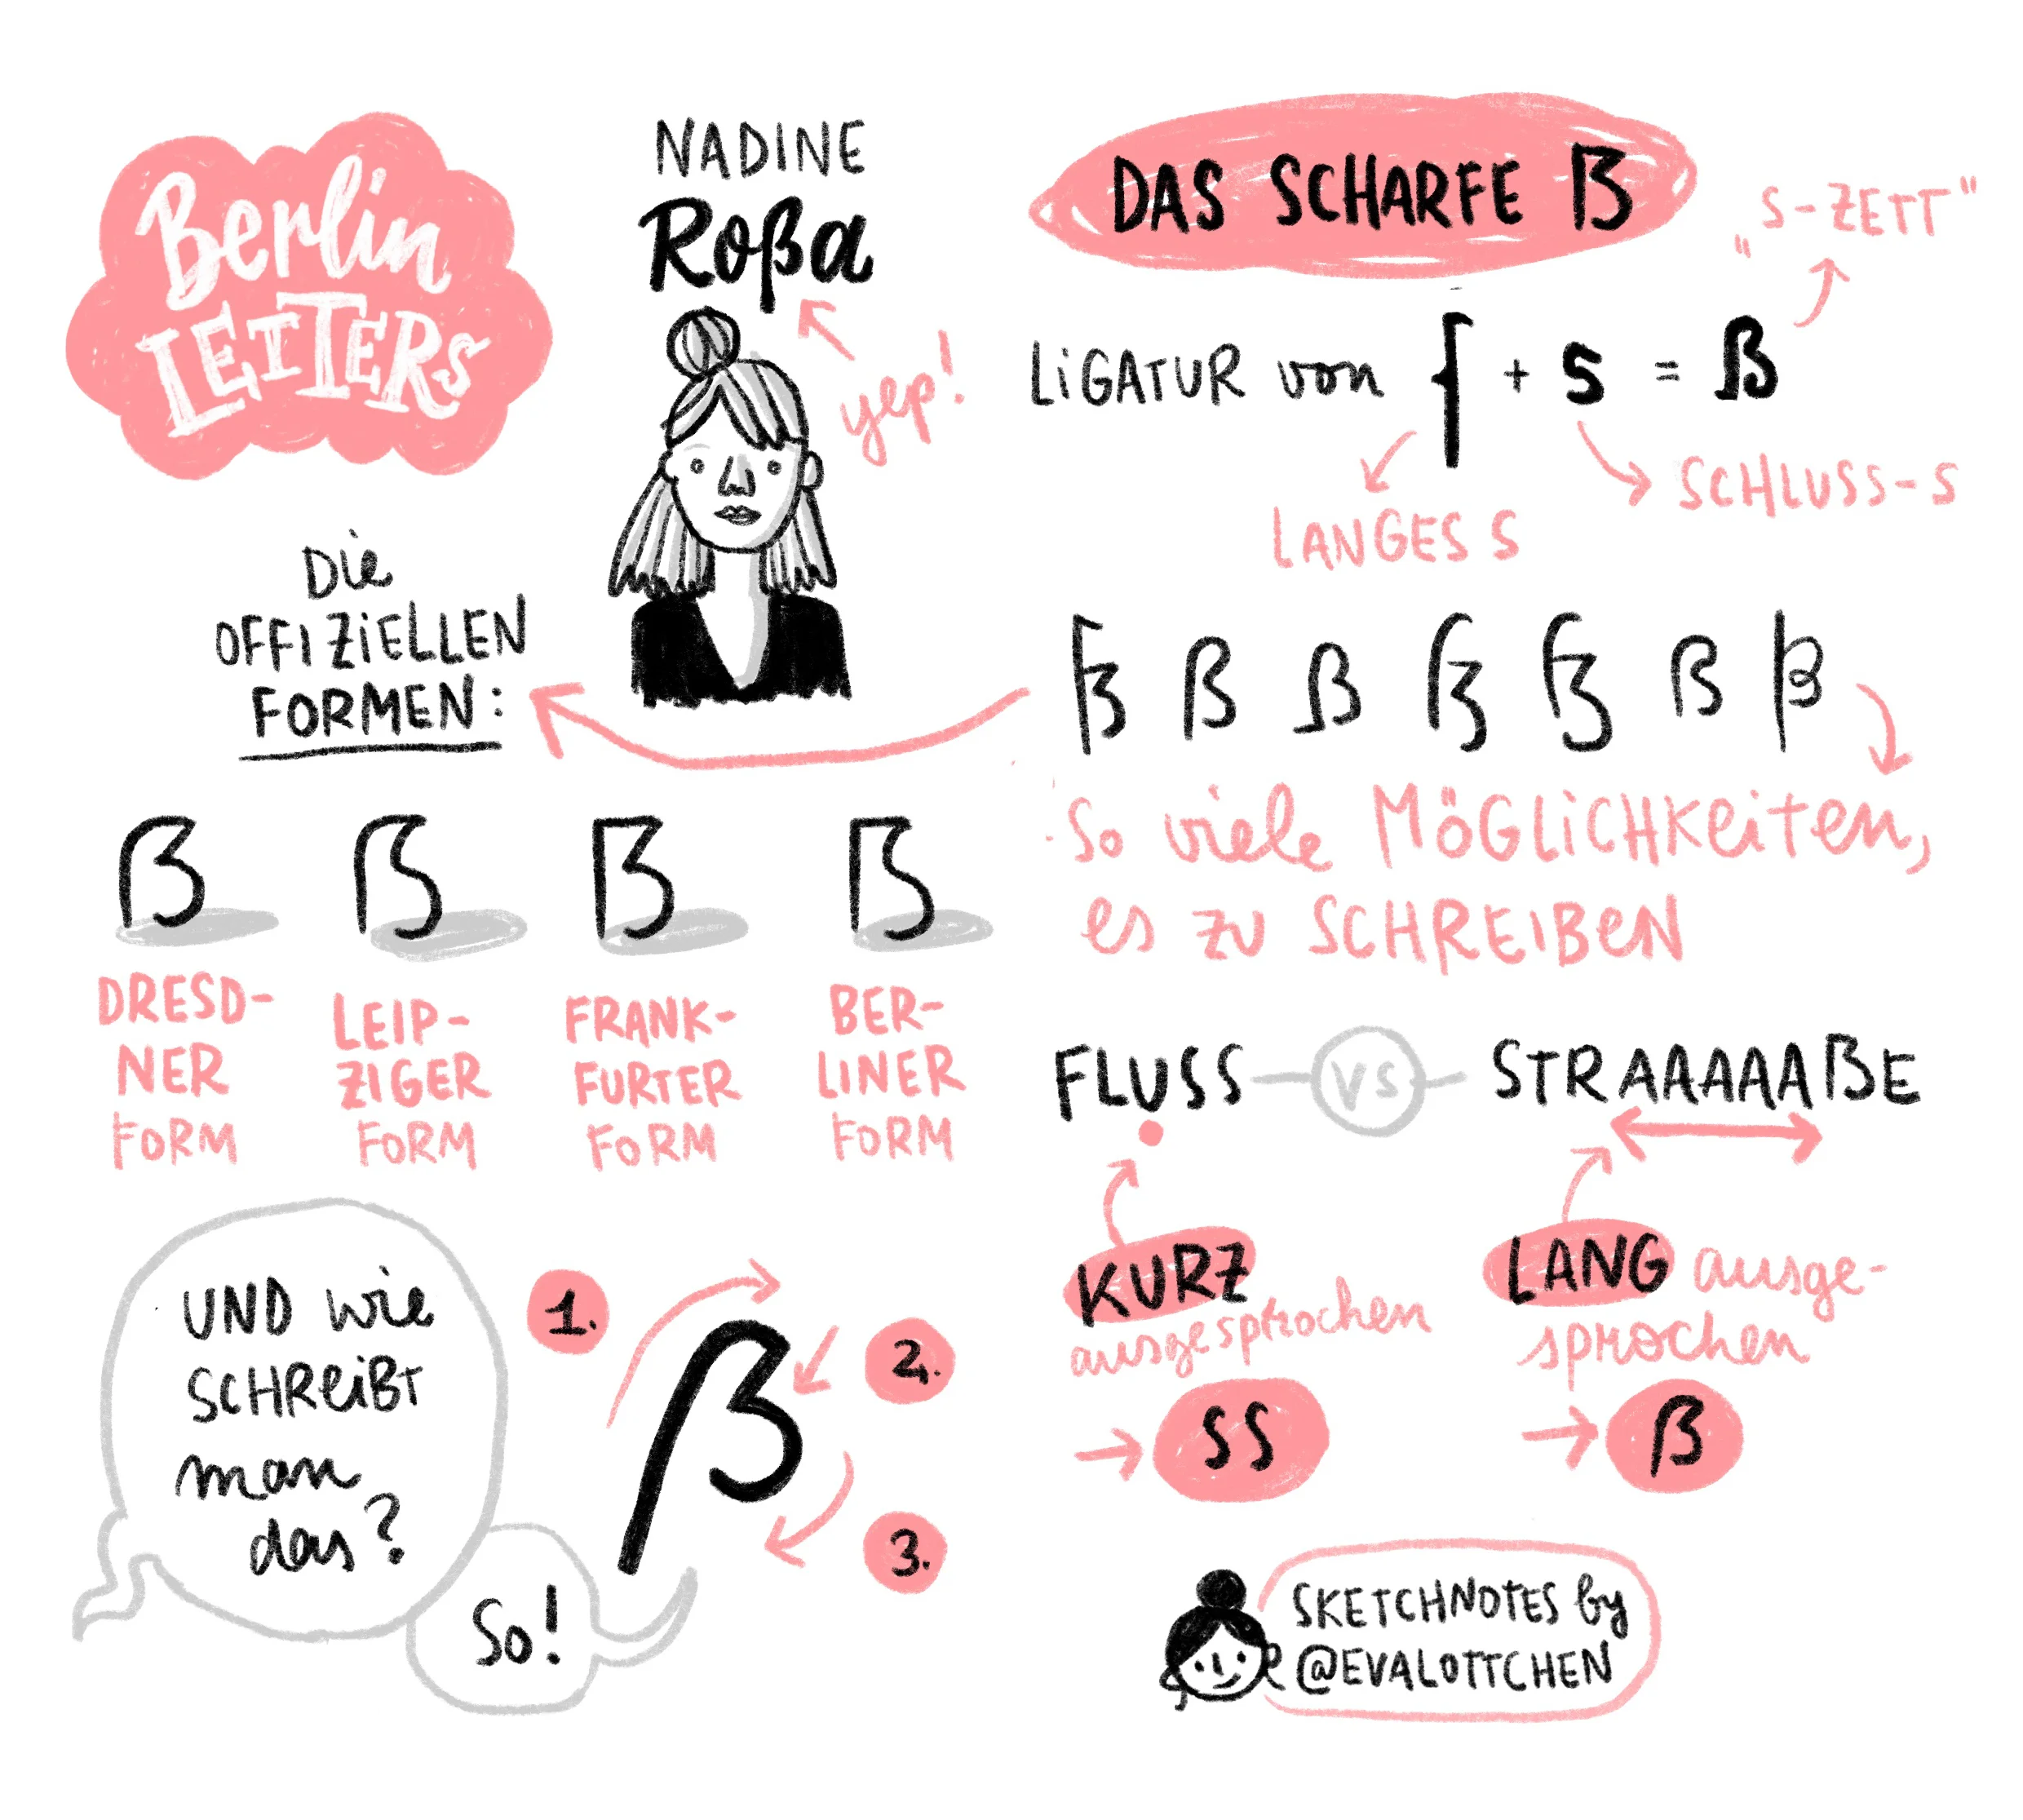 Berlin
LETTERS
NADINE
Roßa
yep!
DAS SCHARFE ß
„S-ZETT"
LiGATUR von ſ + s = ß
LANGES S
SCHLUSS-S
ß ß ß ß ß ß ß
So viele MÖGLiCHKeiten,
es zu SCHREIBeN
Die
OFFIZiELLEN
FORMEN:
ß ß ß ß
DRESD-
NER
FORM
LEIP-
ZIGER
FORM
FRANK-
FURTER
FORM
BER-
LINER
FORM
FLUSS VS STRAAAAAßE
KURZ
ausgesprochen
→ SS
LANG ausge-
sprochen
→ ß
UND wie
SCHReißT
man
das?
So!
1.
ß
2.
3.
SKETCHNOTES by
@EVALOTTCHEN